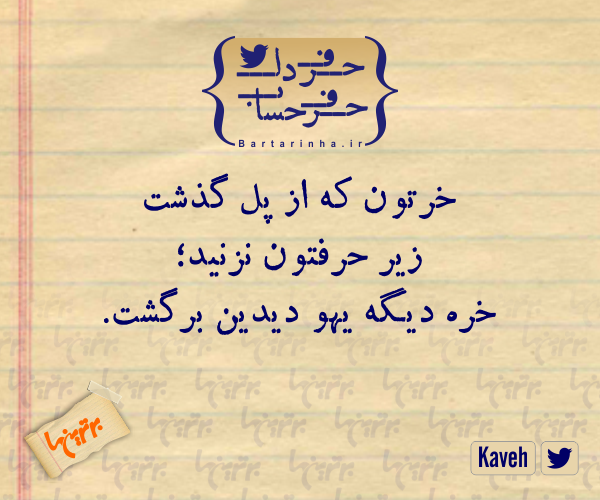 حرف دل
حرف حساب
Bartarinha.ir
خرتون که از پل گذشت
زیر حرفتون نزنید؛
خره دیگه یهو دیدین برگشت.
برترین‌ها
Kaveh